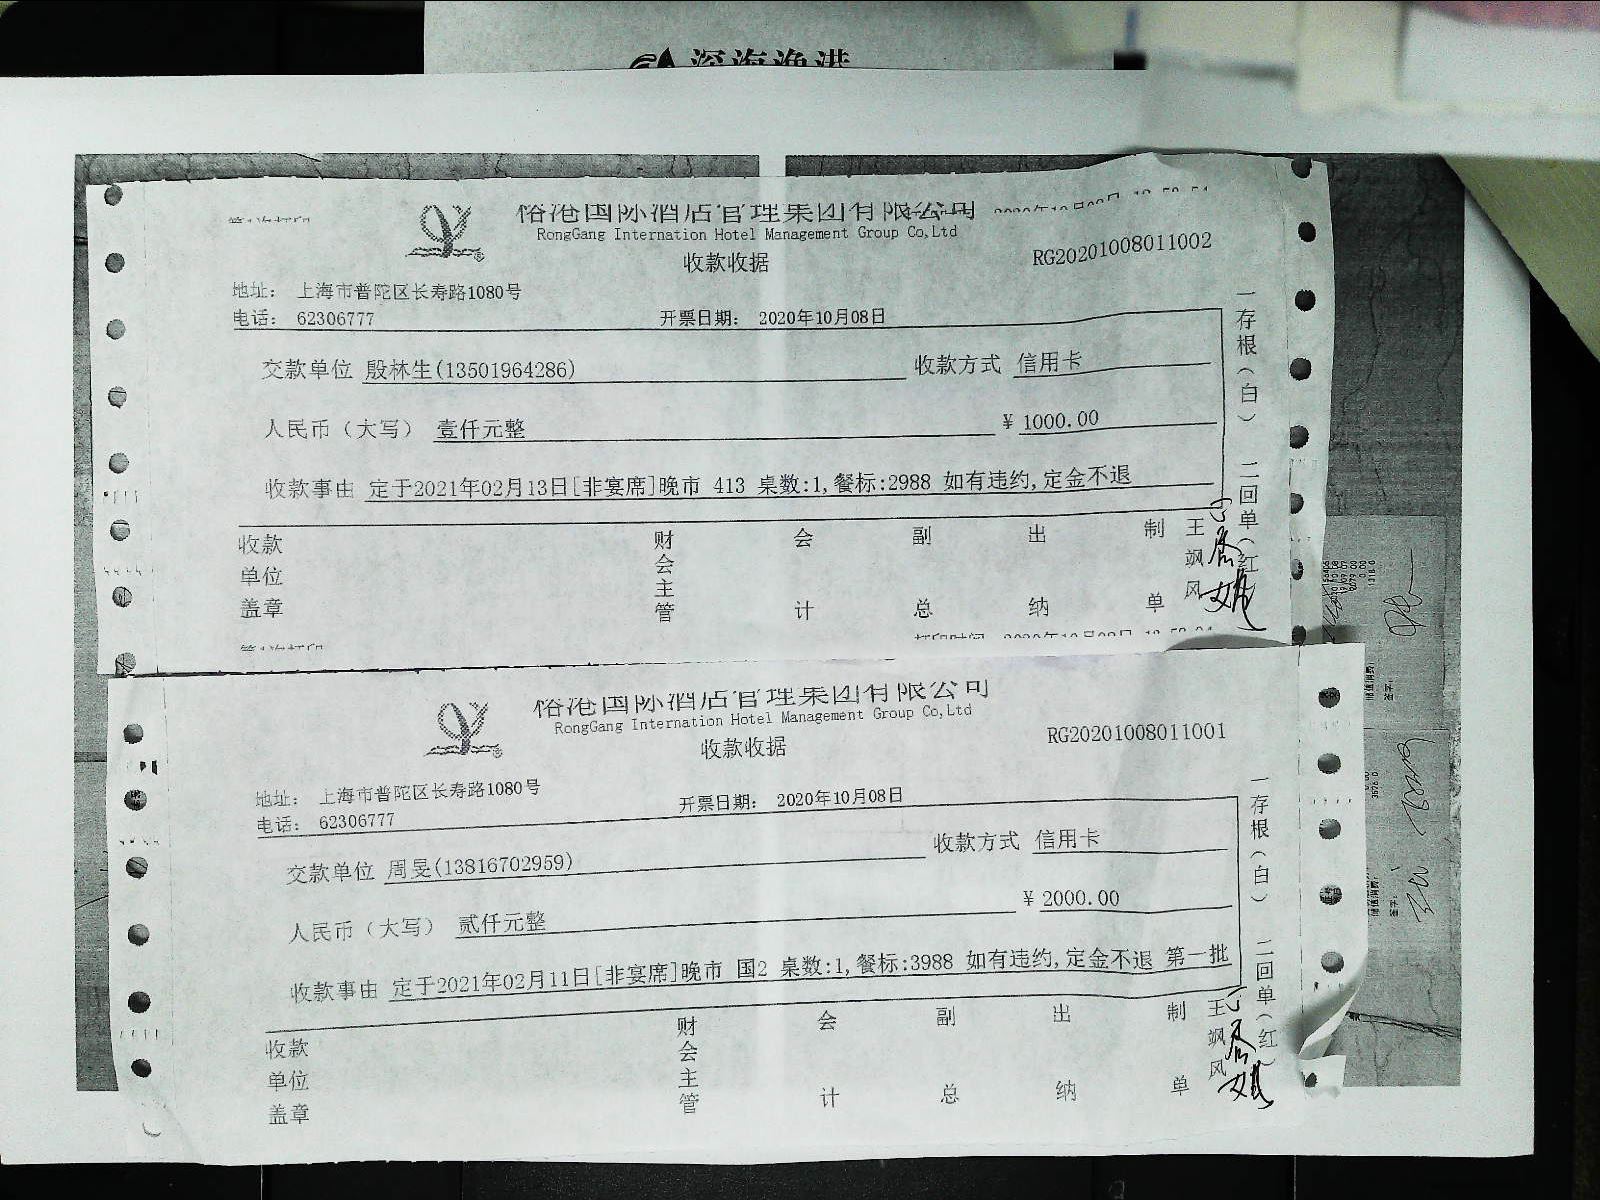 深海渔港
第1次打印
2020年10月08日
俗港国际酒店管理集团有限公司
RongGang Internation Hotel Management Group Co,Ltd
收款收据
RG20201008011002
地址： 上海市普陀区长寿路1080号
电话： 62306777 开票日期： 2020年10月08日
交款单位 殷林生(13501964286) 收款方式 信用卡
人民币（大写） 壹仟元整 ¥ 1000.00
收款事由 定于2021年02月13日[非宴席]晚市 413 桌数:1,餐标:2988 如有违约,定金不退
收款单位盖章 财会主管 会计 副总 出纳 制单 王飒风
一存根（白） 二回单（红）
第1次打印 打印时间 2020年10月08日
俗港国际酒店管理集团有限公司
RongGang Internation Hotel Management Group Co,Ltd
收款收据
RG20201008011001
地址： 上海市普陀区长寿路1080号
电话： 62306777 开票日期： 2020年10月08日
交款单位 周旻(13816702959) 收款方式 信用卡
人民币（大写） 贰仟元整 ¥ 2000.00
收款事由 定于2021年02月11日[非宴席]晚市 国2 桌数:1,餐标:3988 如有违约,定金不退 第一批
收款单位盖章 财会主管 会计 副总 出纳 制单 王飒风
一存根（白） 二回单（红）